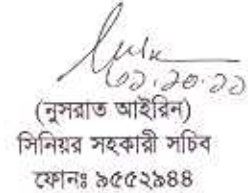 ০১.১০.১১
(নুসরাত আইরিন)
সিনিয়র সহকারী সচিব
ফোনঃ ৯৫৫২৯৪৪